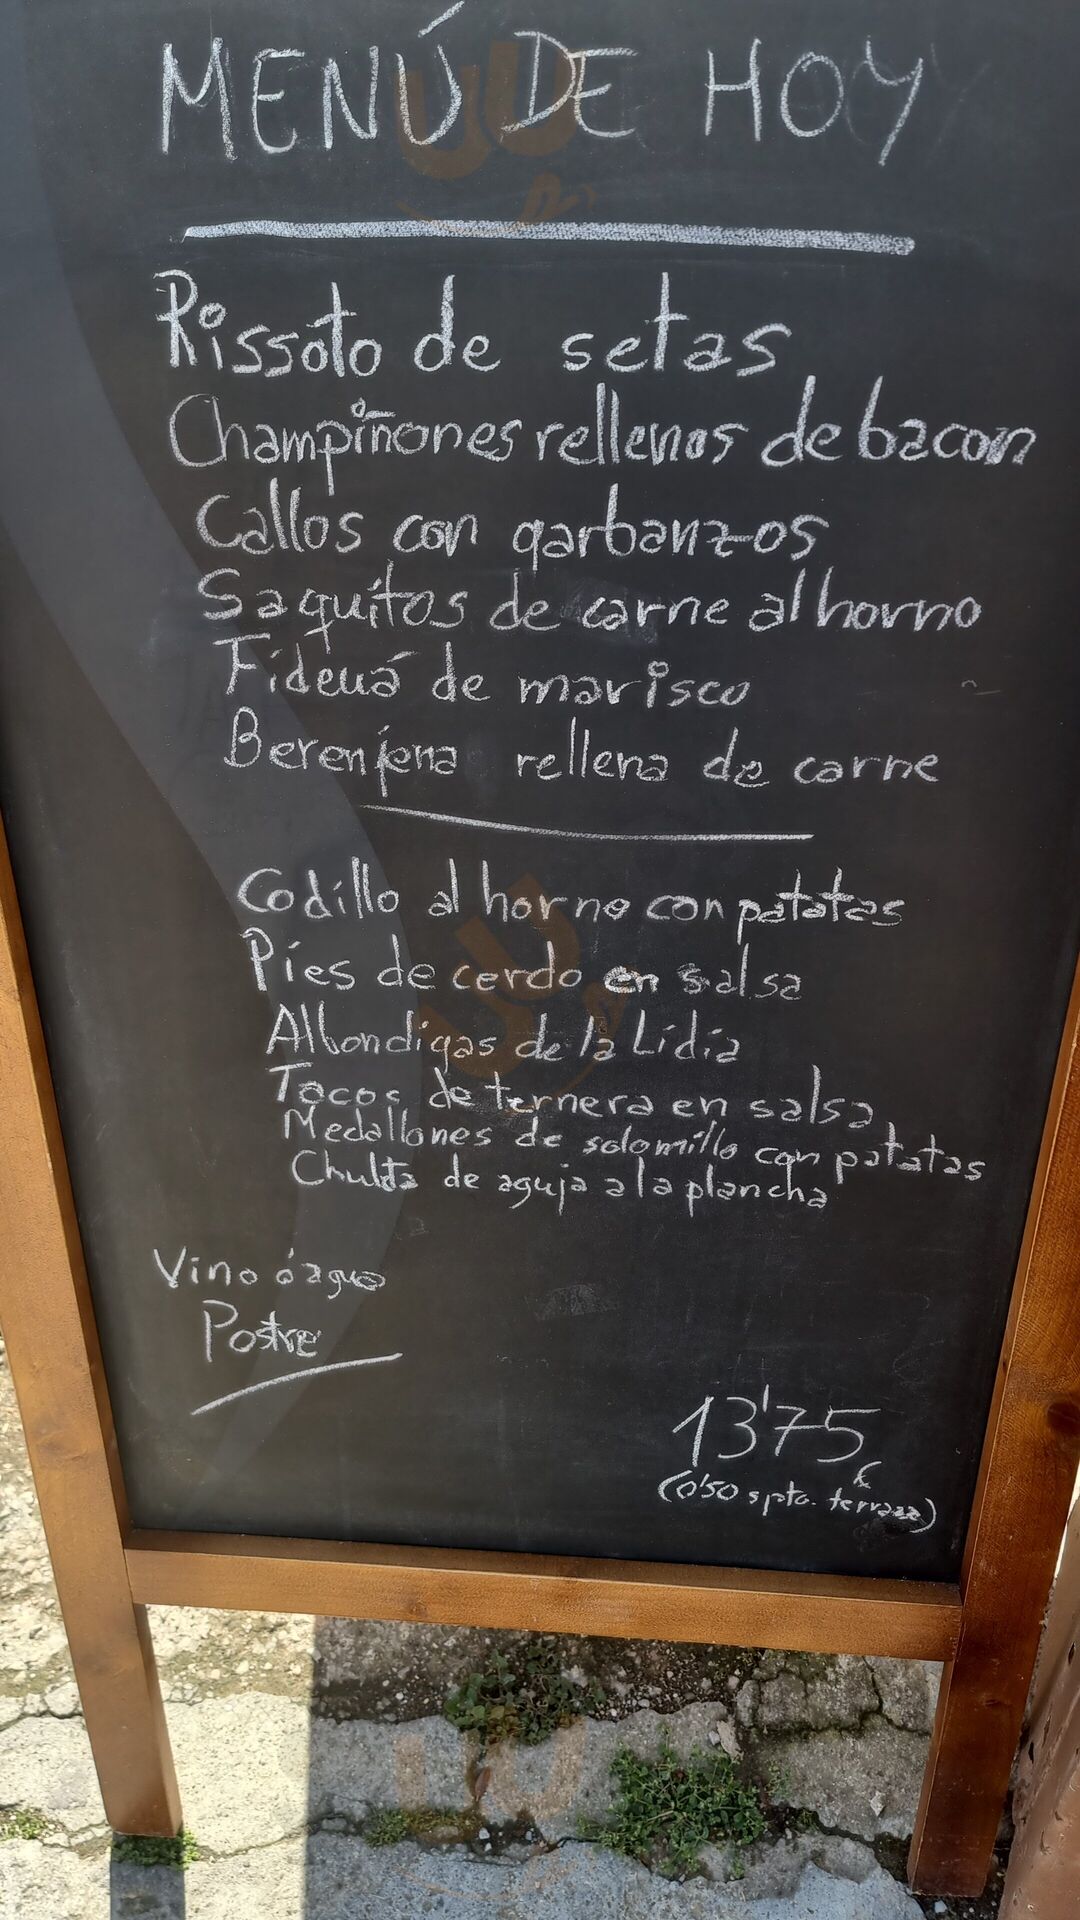 MENÚ DE HOY
Rissoto de setas
Champiñones rellenos de bacon
Callos con garbanzos
Saquitos de carne al horno
Fideuá de marisco
Berenjena rellena de carne
Codillo al horno con patatas
Pies de cerdo en salsa
Albondigas de la Lidia
Tacos de ternera en salsa
Medallones de solomillo con patatas
Chuleta de aguja a la plancha
Vino ó agua
Postre
13'75 €
(0'50 spto. terraza)